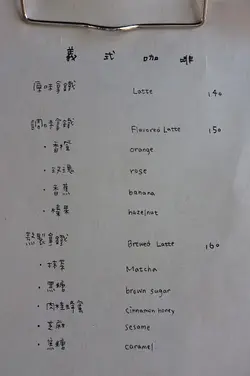 義式咖啡
原味拿鐵 Latte 140
調味拿鐵 Flavored Latte 150
· 香橙 orange
· 玫瑰 rose
· 香蕉 banana
· 榛果 hazelnut
熬製拿鐵 Brewed Latte 160
· 抹茶 Matcha
· 黑糖 brown sugar
· 肉桂蜂蜜 cinnamon honey
· 芝麻 sesame
· 焦糖 caramel